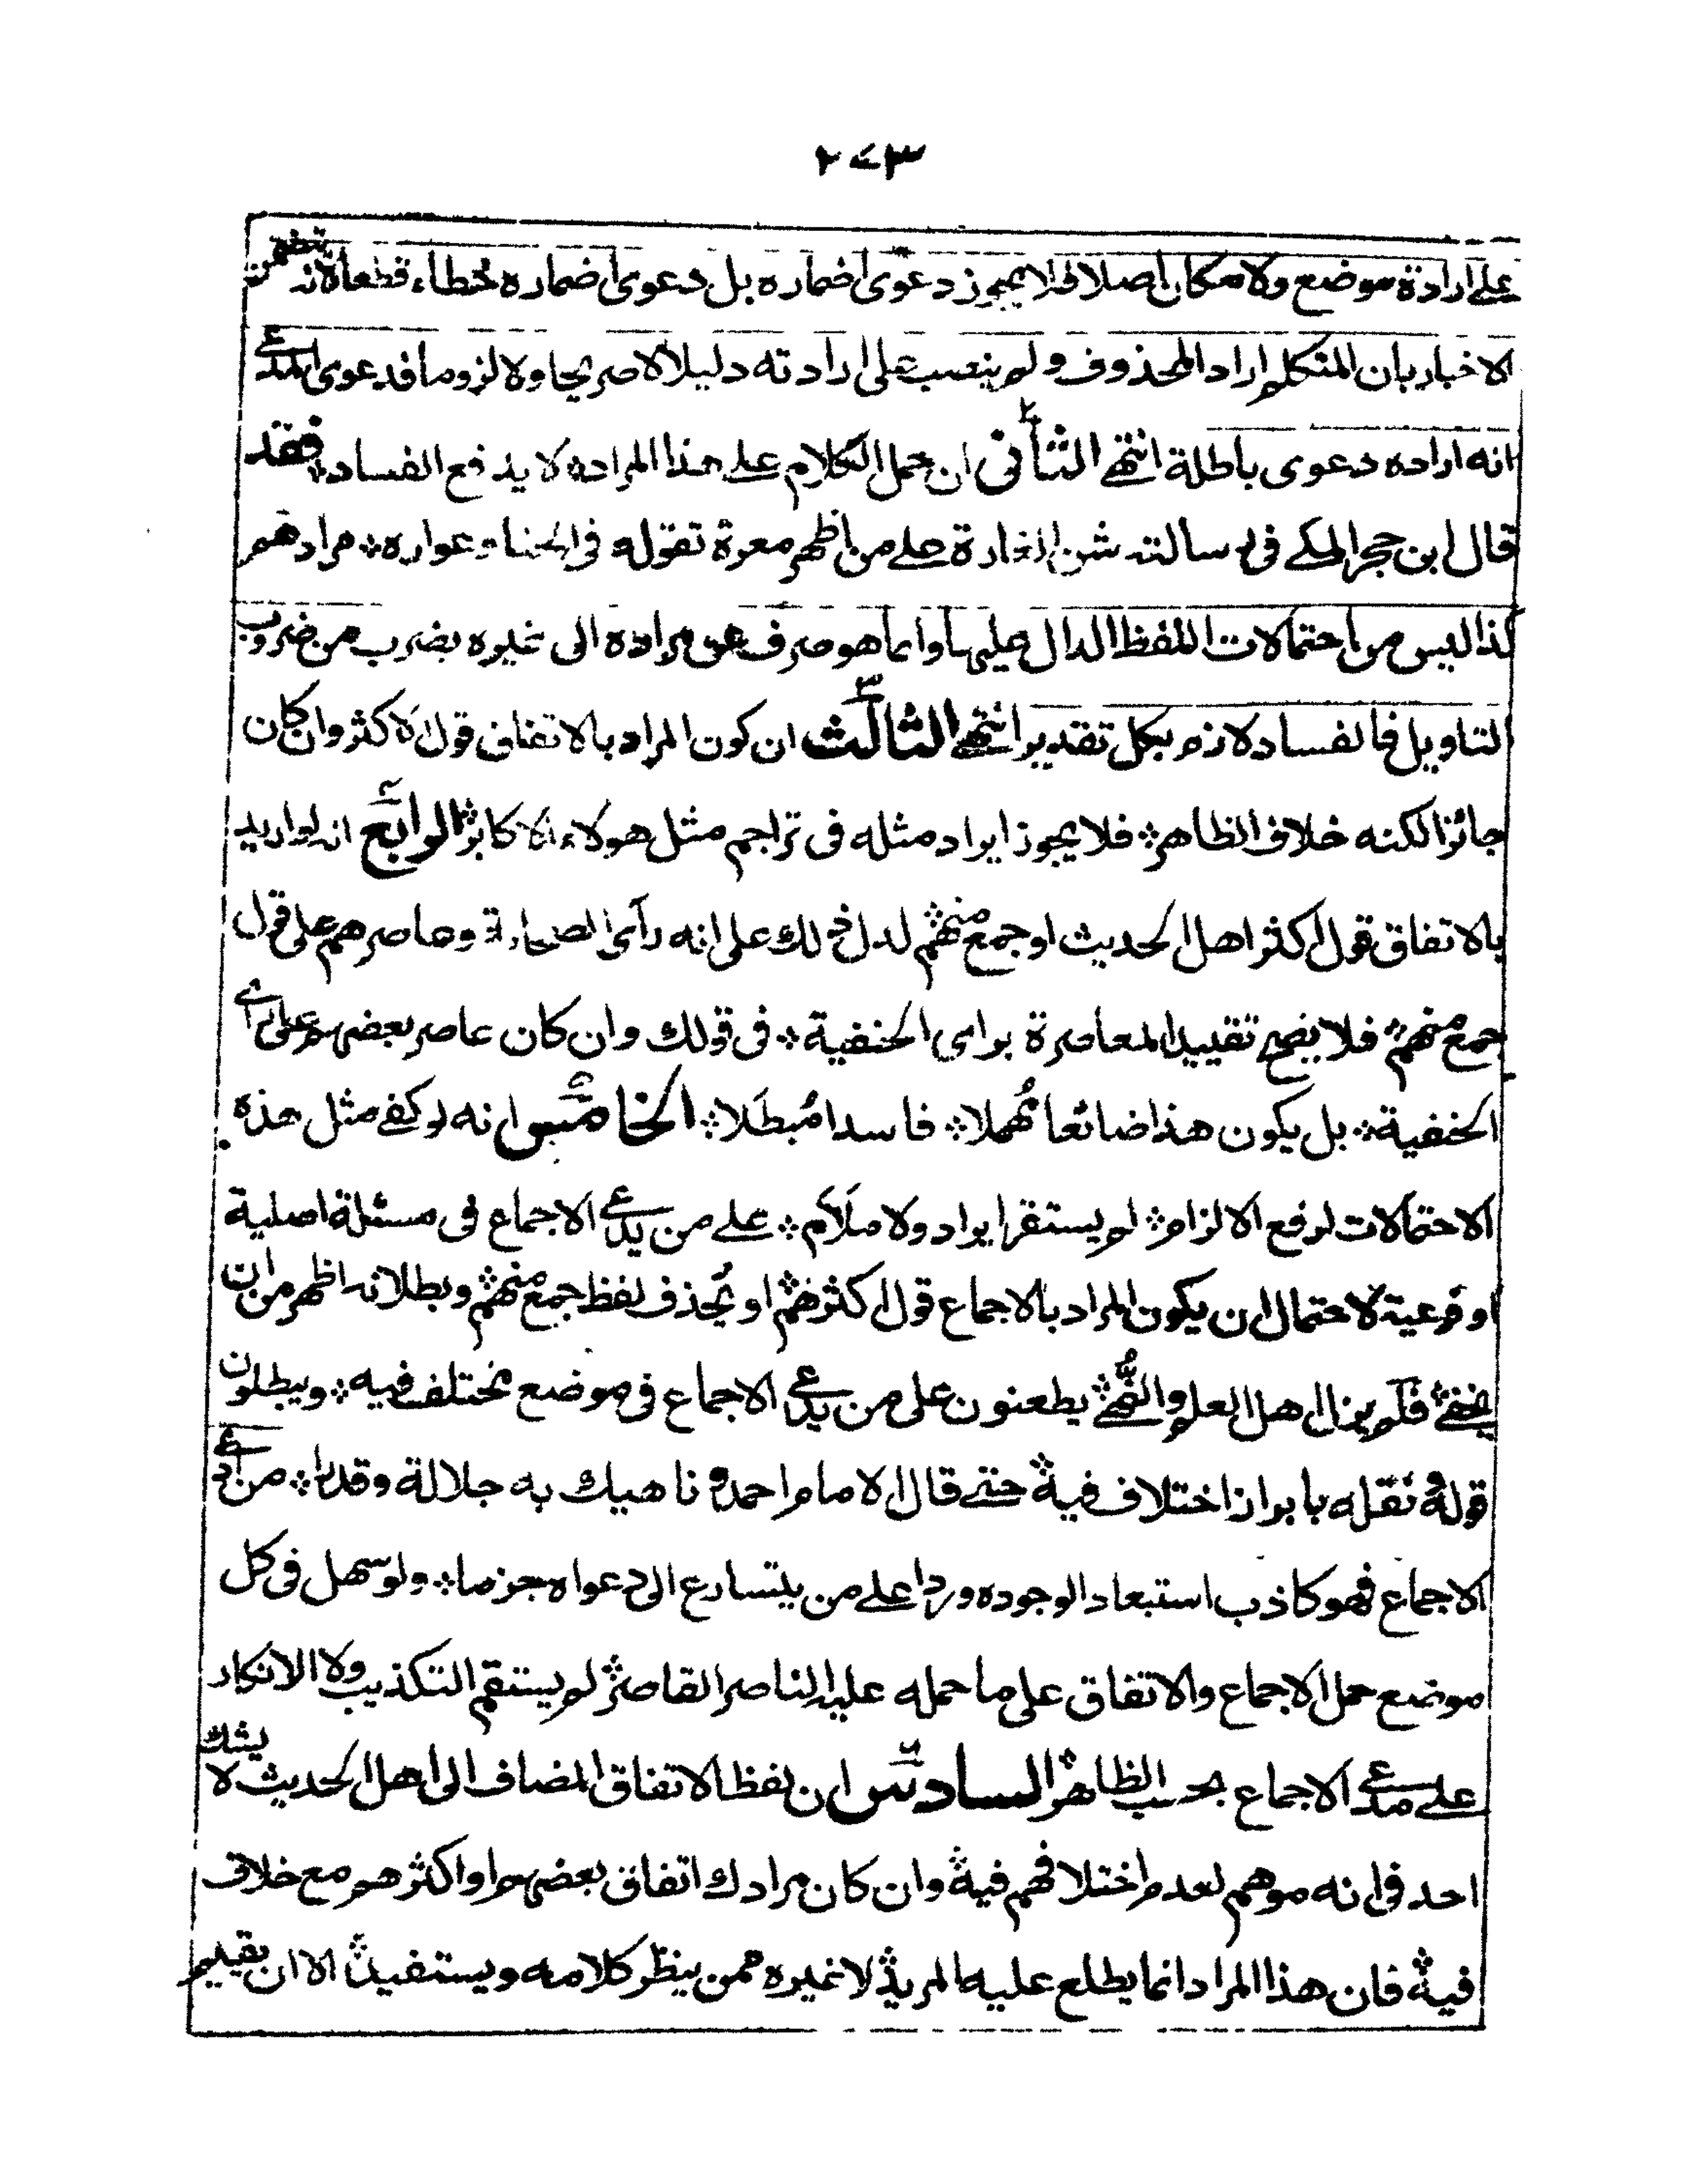 ٢٧٣
على ارادة موضع ولا مكان اصلا فلا يجوز دعوى اضماره بل دعوى اضماره خطاء قطعا لانه تتضمن
الاخبار بان المتكلم اراد المحذوف ولم ينصب على ارادته دليلا لا صريحا ولا لزوما فدعوى المدعي
انه اراده دعوى باطلة انتهى الثاني ان حمل الكلام على هذا المراد لا يدفع الفساد فقد
قال ابن حجر المكي في رسالته شن الغارة على من اظهر معرة تقوله في الحنا وعواره مرادهم
كذا ليس من احتمالات اللفظ الدال عليها وانما هو صرف عن مراده الى غيره بضرب من ضروب
التاويل فالفساد لازم بكل تقدير انتهى الثالث ان كون المراد بالاتفاق قول الاكثر وان كان
جائزا لكنه خلاف الظاهر فلا يجوز ايراد مثله في تراجم مثل هولاء الاكابر الرابع انه لو اريد
بالاتفاق قول اكثر اهل الحديث او جمع منهم لدل ذلك على انه رأى الصحابة وعاصرهم على قول
جمع منهم فلا يصح تقييد المعاصرة براى الحنفية في قولك وان كان عاصر بعضهم على راى
الحنفية بل يكون هذا ضائعا مُهملا فاسدا مُبطَلا الخامس انه لو كفى مثل هذه
الاحتمالات لرفع الالزام لم يستقر ايراد ولا ملام على من يدعي الاجماع في مسئلة اصلية
او فرعية لاحتمال ان يكون المراد بالاجماع قول اكثرهم او يُحذف لفظ جمع منهم وبطلانه اظهر من ان
يخفى فلم يزل اهل العلم والنُّهى يطعنون على من يدعي الاجماع في موضع مختلف فيه ويبطلون
قوله ونقله بابراز اختلاف فيه حتى قال الامام احمد وناهيك به جلالة وقدرا من ادعى
الاجماع فهو كاذب استبعادا لوجوده وردا على من يتسارع الى دعواه جزما ولو سهل في كل
موضع حمل الاجماع والاتفاق على ما حمله عليه الناصر القاصر لم يستقم التكذيب ولا الانكار
على مدعي الاجماع بحسب الظاهر السادس ان لفظ الاتفاق المضاف الى اهل الحديث لا يشك
احد في انه موهم لعدم اختلافهم فيه وان كان مرادك اتفاق بعضهم او اكثرهم مع خلاف
فيه فان هذا المراد انما يطلع عليه المريد لا غيره ممن ينظر كلامه ويستفيد الا ان يقيم